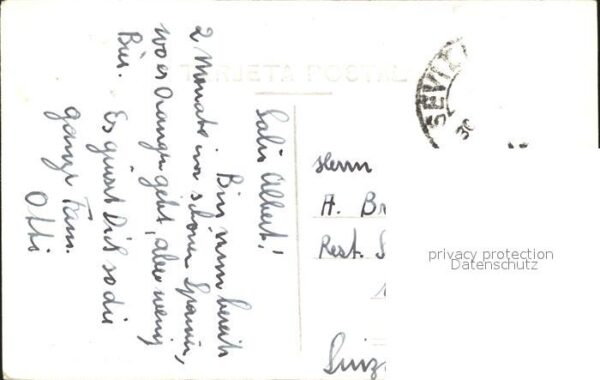 TARJETA POSTAL
Salü Albert!
Bin nun bereits
2 Monate im schönen Spanien,
wo es Orangen gibt, aber wenig
Bier. Es grüsst Dich so die
ganze Fam.
Otti
SEVILLA
Herrn
A. Br
Rest. S
privacy protection
Datenschutz